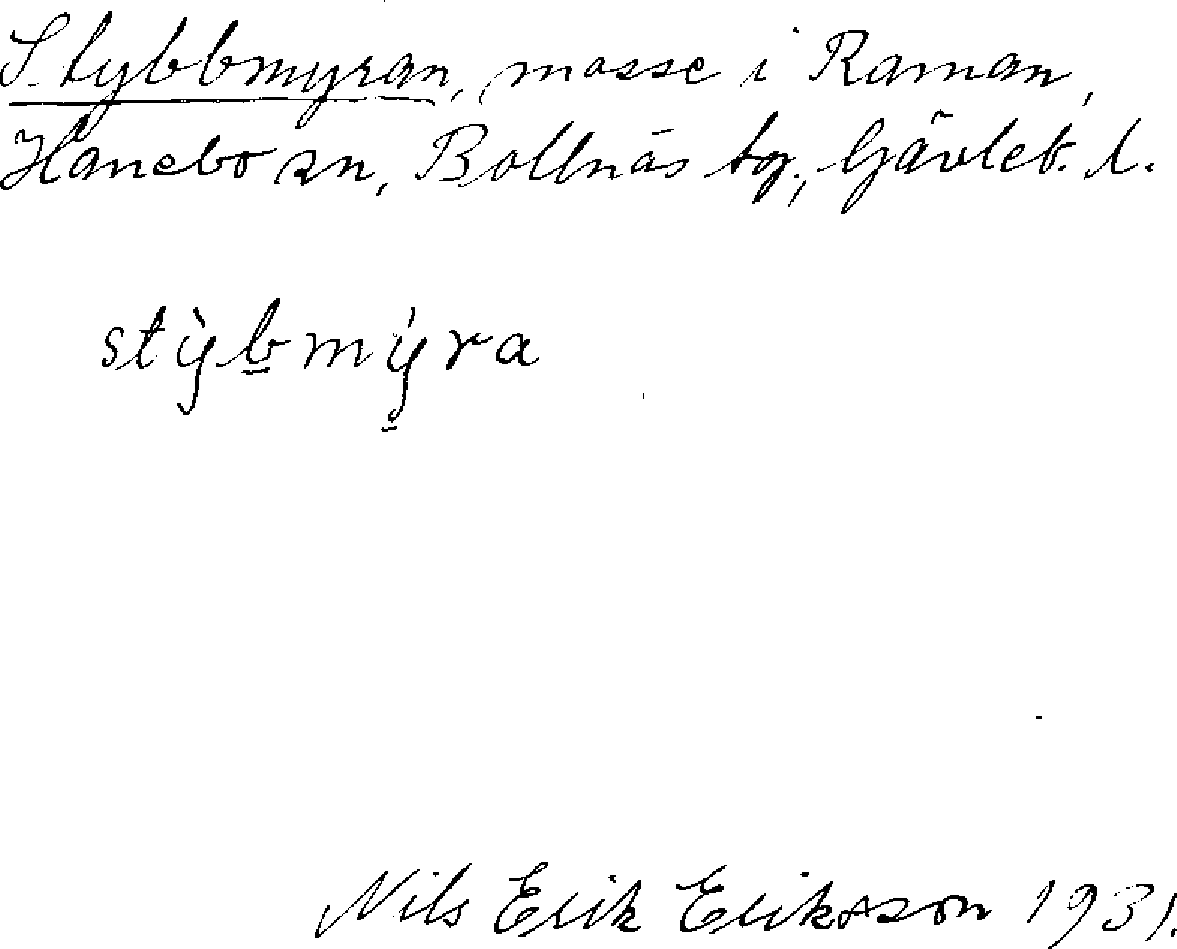 Stybbmyran, mosse i Raman,
Hanebo sn, Bollnäs tg., Gävleb. l.
stỳbmýra
Nils Erik Eriksson 1931.